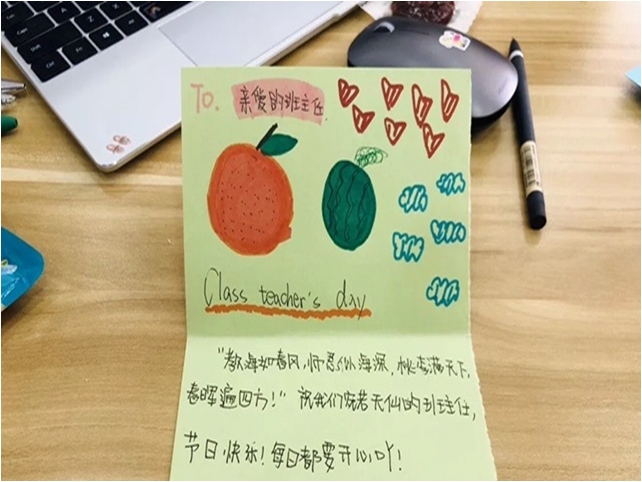 To. 亲爱的班主任
Class teacher's day
"教诲如春风,师恩似海深,桃李满天下,
春晖遍四方!"祝我们宛若天仙的班主任,
节日快乐!每日都要开心吖!